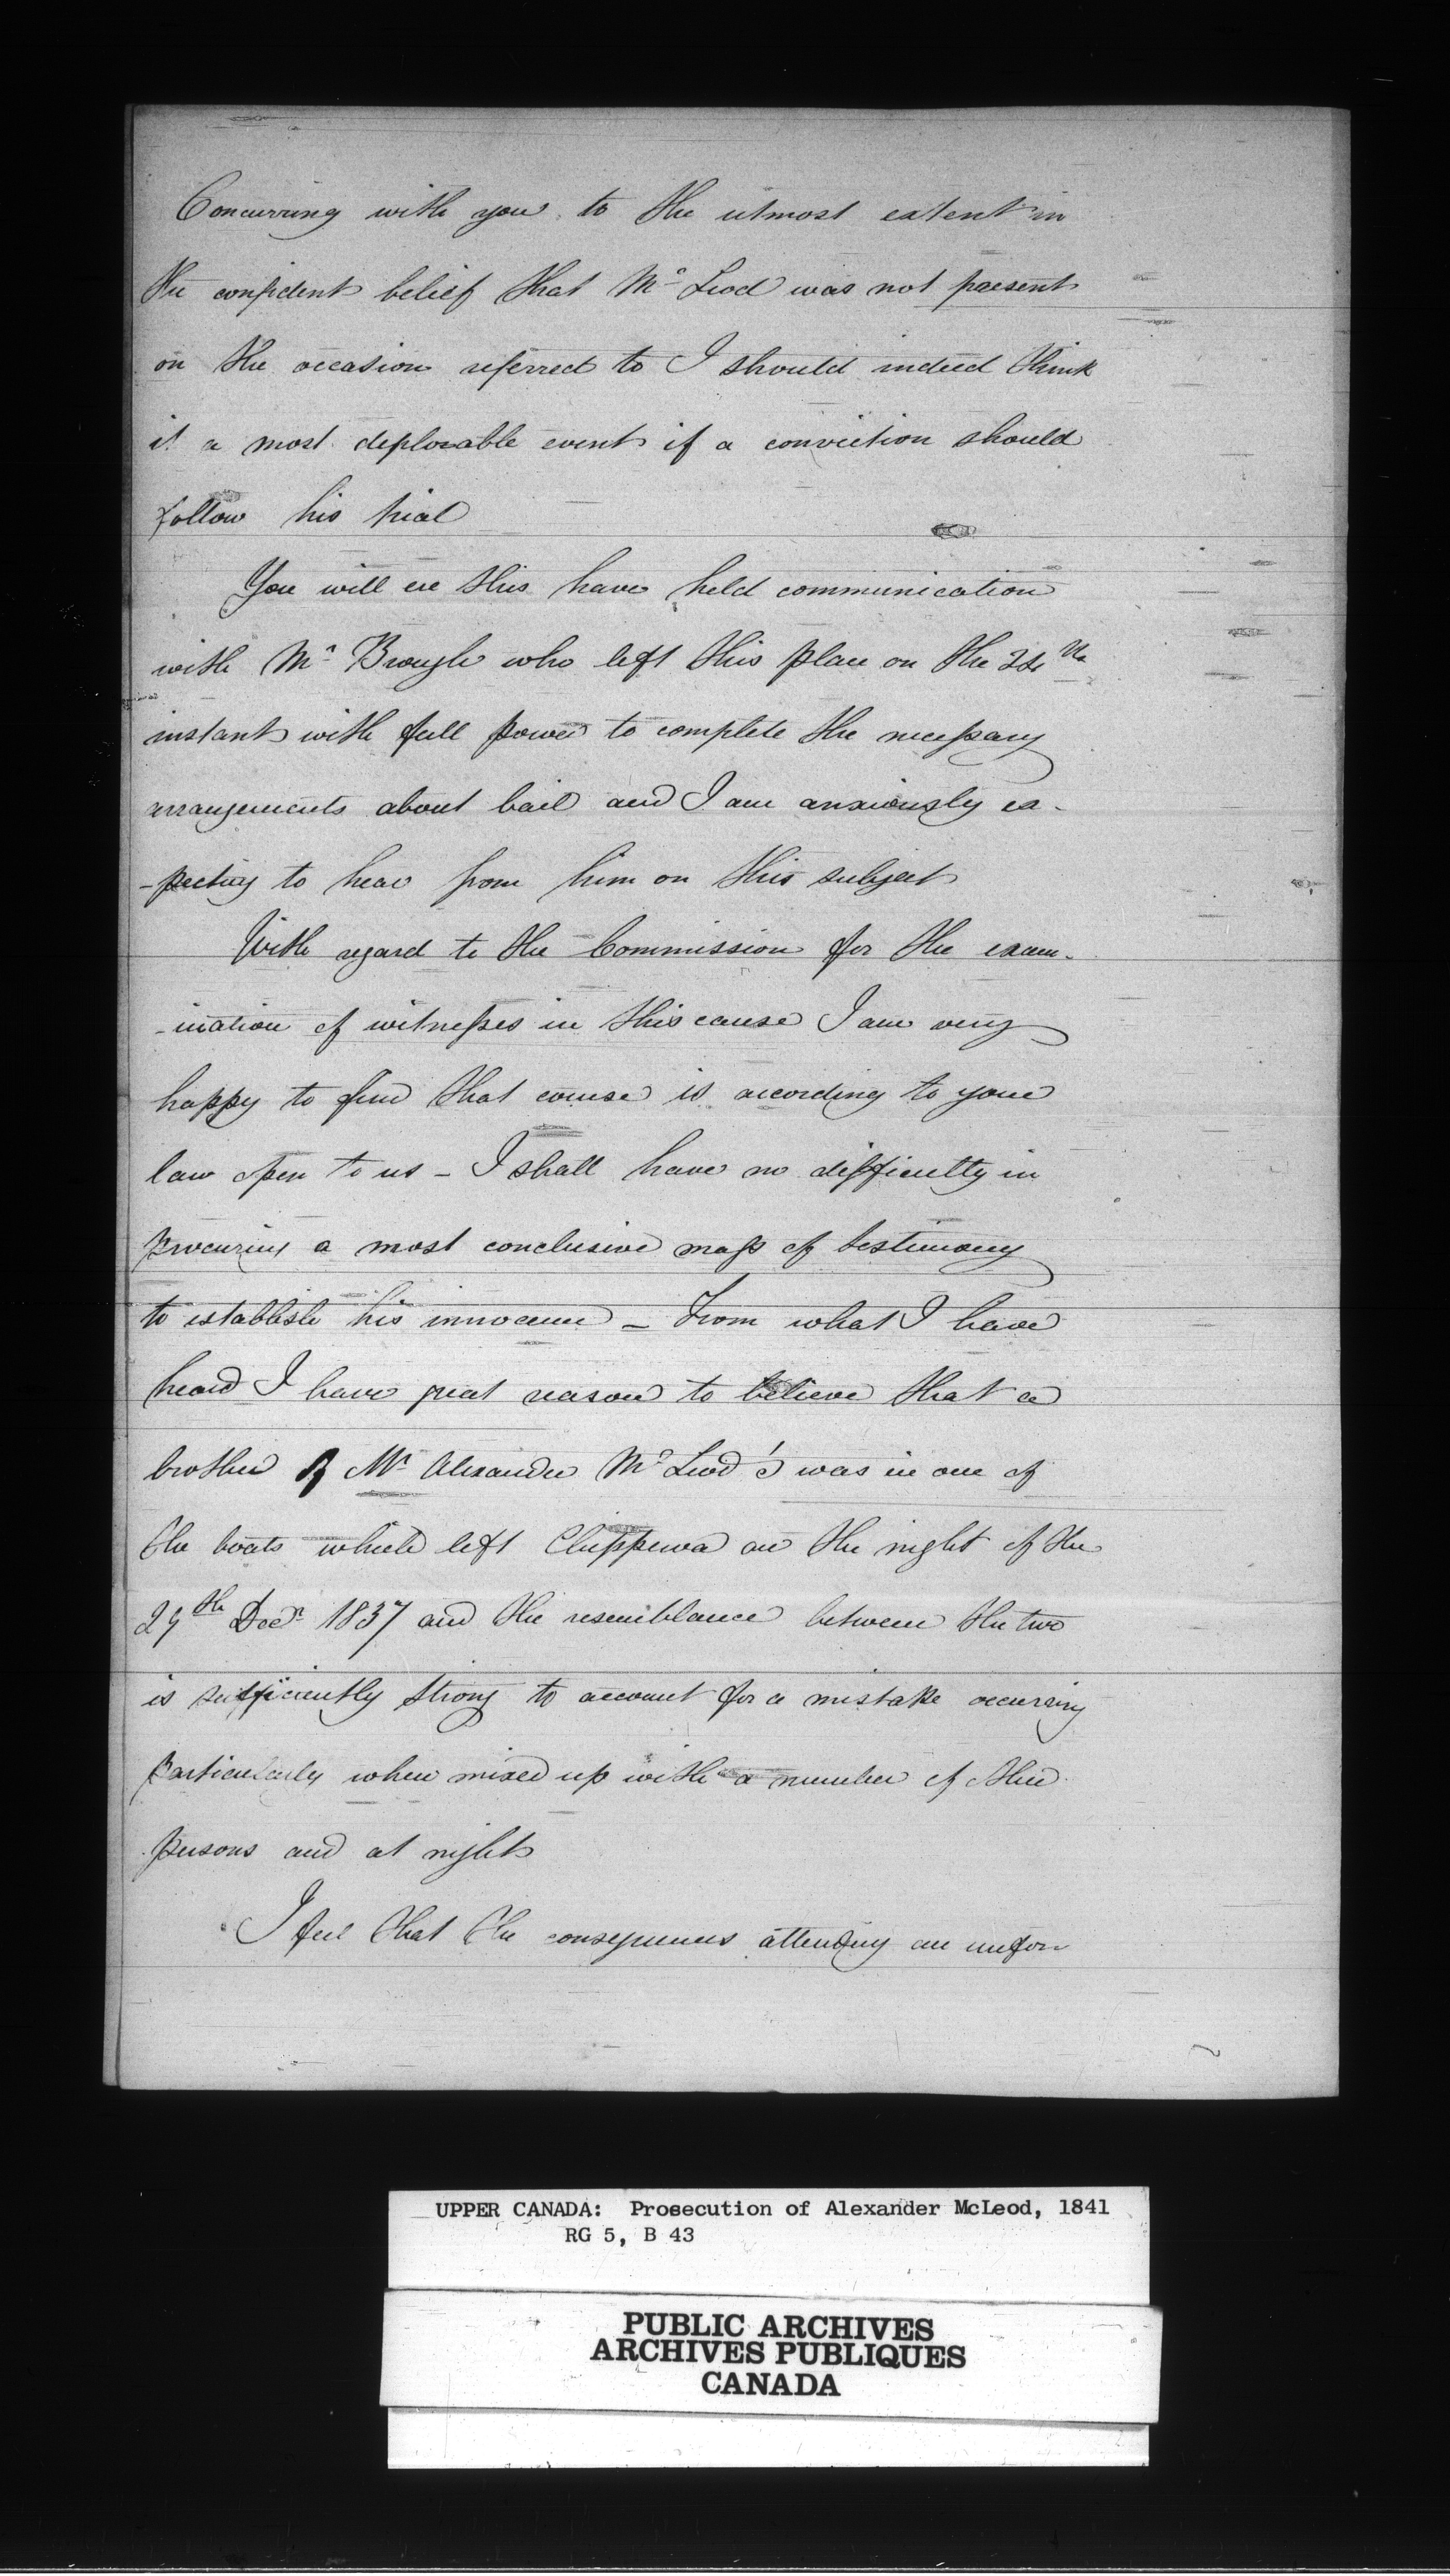 Concurring with you to the utmost extent in
the confident belief that Mc Leod was not present
on the occasion referred to I should indeed think
it a most deplorable event if a conviction should
follow his trial
You will ere this have held communication
with Mr Brough who left this place on the 24th
instant with full power to complete the necessary
arrangements about bail and I am anxiously ex-
-pecting to hear from him on this subject
With regard to the Commission for the exam-
-ination of witnesses in this cause I am very
happy to find that course is according to your
law open to us - I shall have no difficulty in
procuring a most conclusive mass of testimony
to establish his innocence - From what I have
heard I have great reason to believe that a
brother of Mr Alexander Mc Leod's was in one of
the boats which left Chippewa on the night of the
29th Decr 1837 and the resemblance between the two
is sufficiently strong to account for a mistake occurring
particularly when mixed up with a number of other
persons and at night
I feel that the consequences attending an unfor
UPPER CANADA: Prosecution of Alexander McLeod, 1841
RG 5, B 43
PUBLIC ARCHIVES
ARCHIVES PUBLIQUES
CANADA